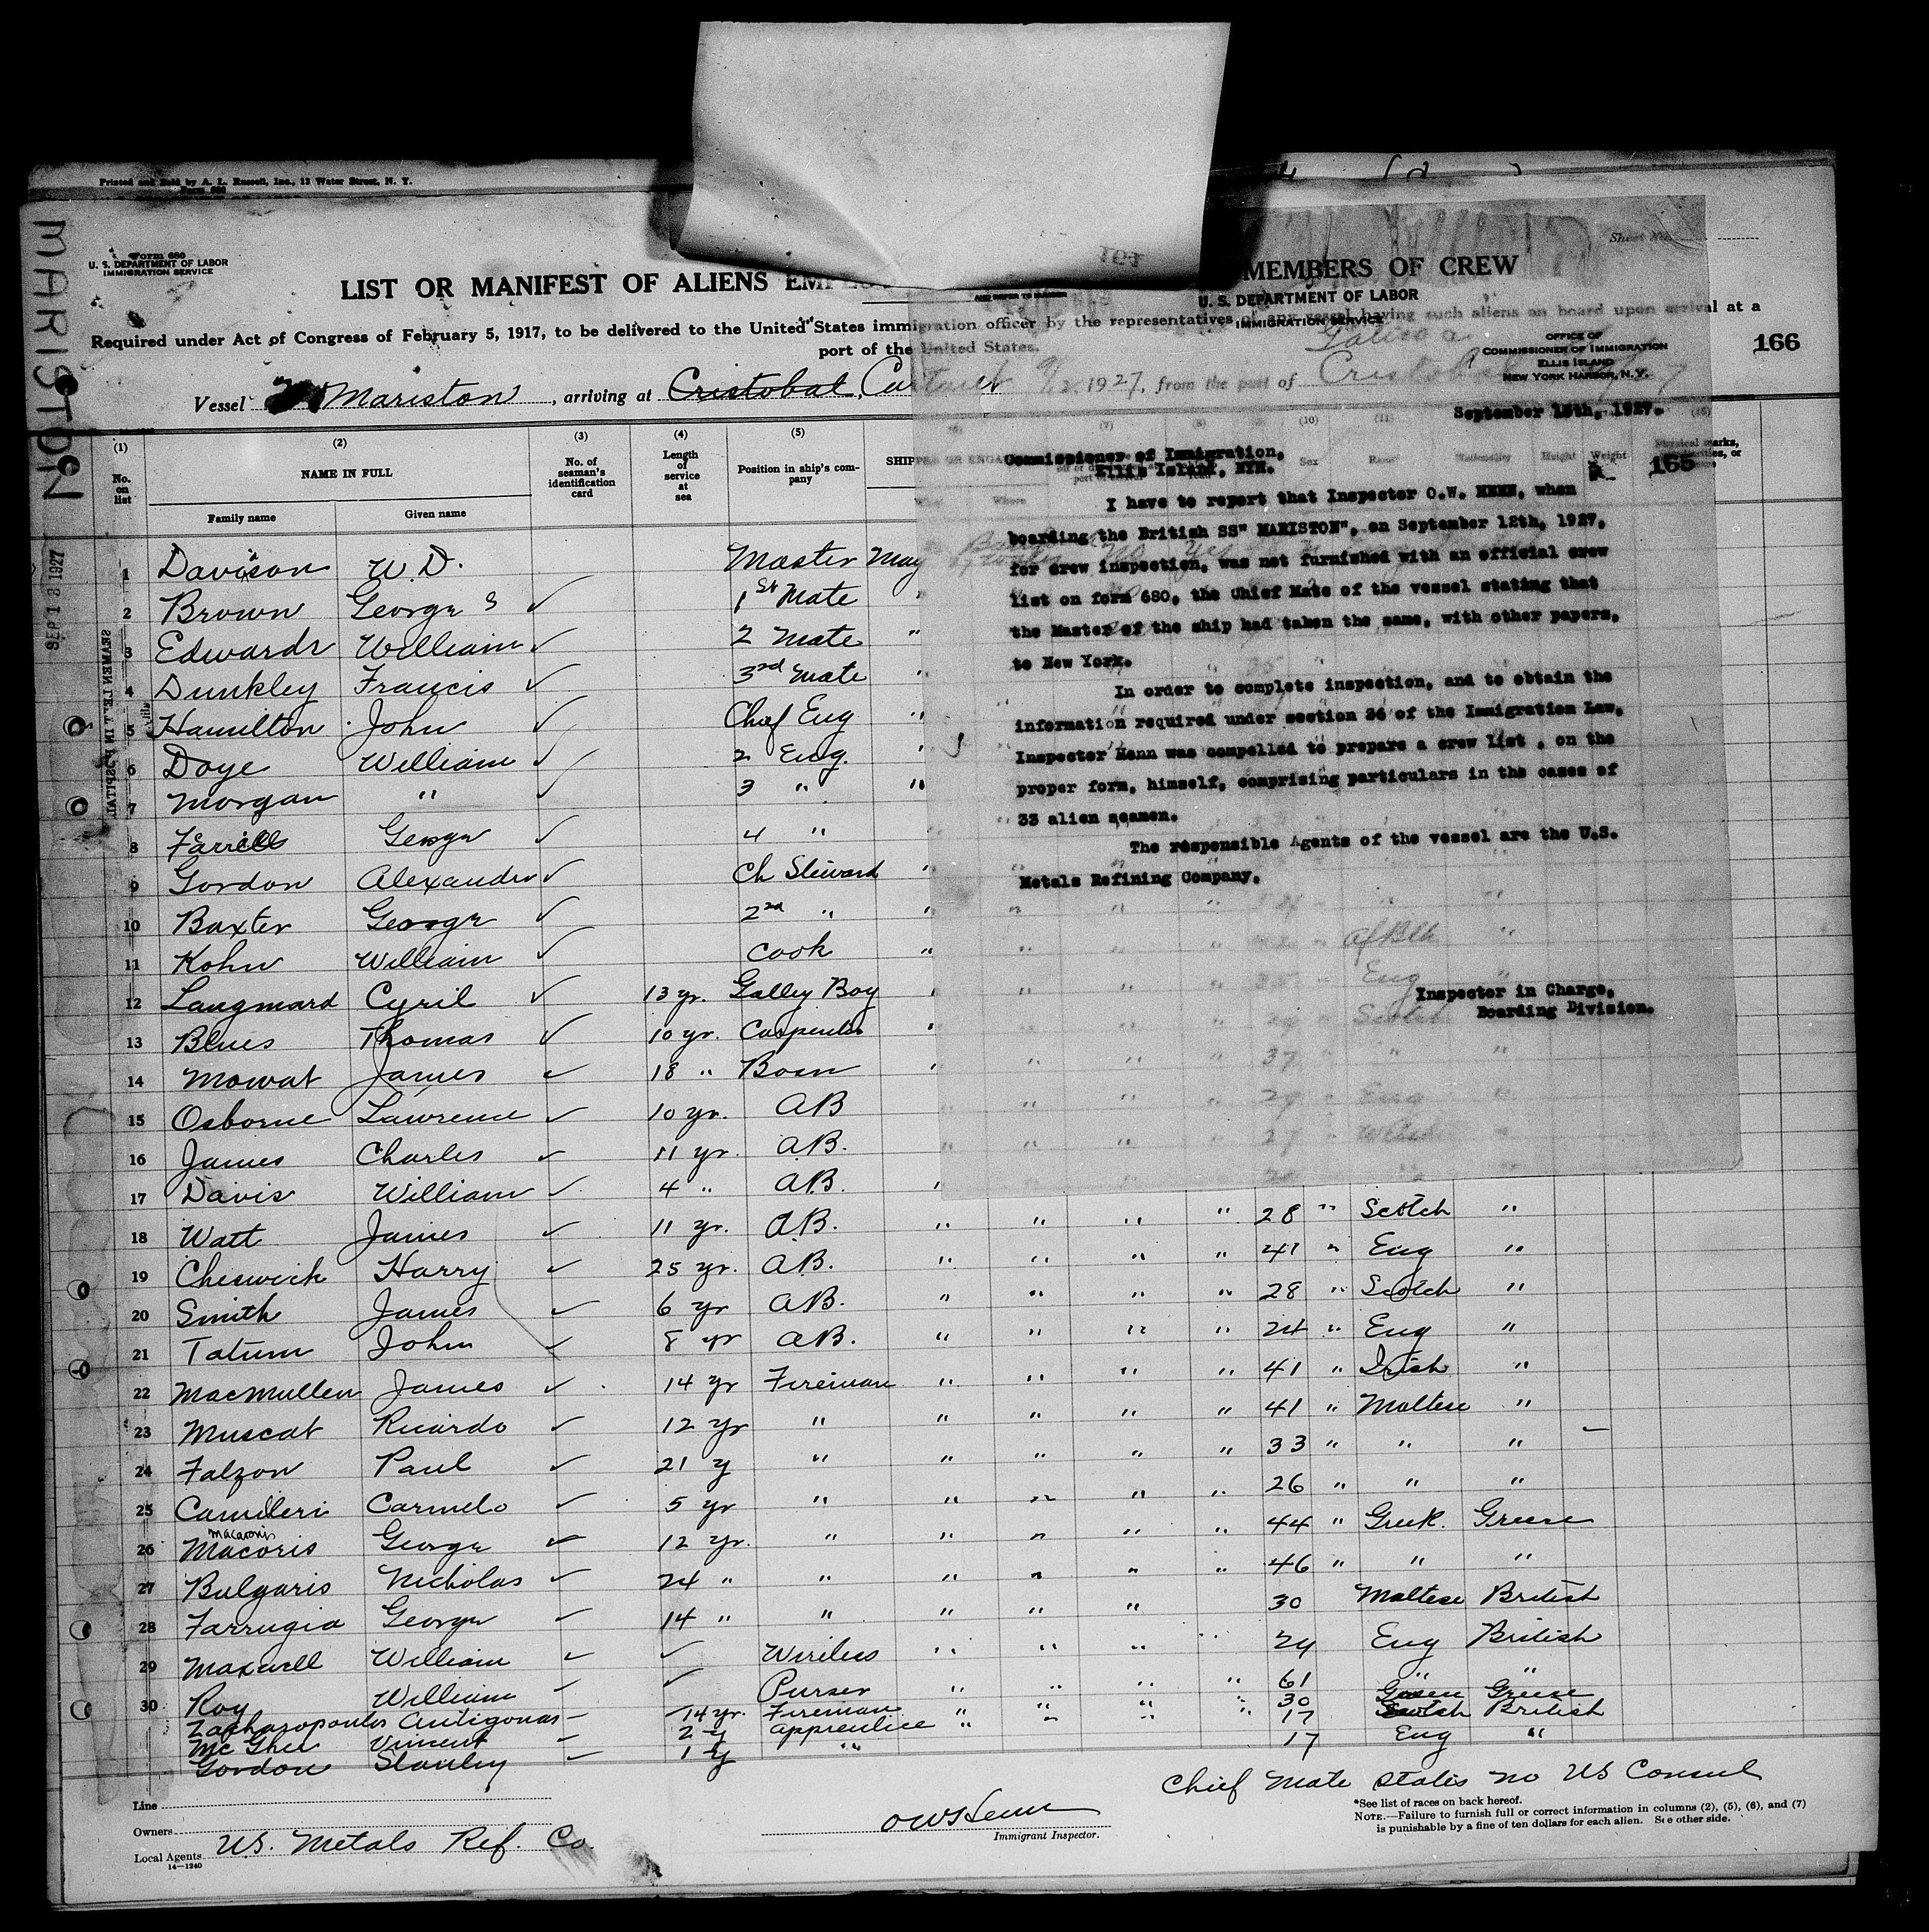 Printed and Sold by A. L. Russell, Inc., 12 Water Street, N. Y.
Form 680
U. S. DEPARTMENT OF LABOR
IMMIGRATION SERVICE
MARISTON
SEP 13 1927
LIST OR MANIFEST OF ALIENS EMPLO
MEMBERS OF CREW
Sheet No.
Required under Act of Congress of February 5, 1917, to be delivered to the United States immigration officer by the representatives of any vessel having such aliens on board upon arrival at a
port of the United States.
166
Vessel Mariston, arriving at Cristobal, Carteret 9/12 1927, from the port of Cristobal
(1) (2) (3) (4) (5)
No. on list
NAME IN FULL
Family name Given name
No. of seaman's identification card
Length of service at sea
Position in ship's company
1 Davison W. D. Master May
2 Brown George S 1st Mate "
3 Edwards William 2 Mate "
4 Dunkley Francis 3rd Mate "
5 Hamilton John Chief Eng "
6 Doye William 2 Eng. "
7 Morgan " 3 " "
8 Farrell George 4 "
9 Gordon Alexander Ch Steward "
10 Baxter George 2nd " "
11 Kohn William Cook "
12 Langmard Cyril 13 yr. Galley Boy "
13 Blues Thomas 10 yr. Carpenter "
14 Mowat James 18 " Bosn "
15 Osborne Lawrence 10 yr. AB
16 James Charles 11 yr. A.B.
17 Davis William 4 " A.B. "
18 Watt James 11 yr. A.B. " " " " 28 " Scotch "
19 Cheswick Harry 25 yr. A.B. " " " " 41 " Eng "
20 Smith James 6 yr A.B. " " " " 28 " Scotch "
21 Tatum John 8 yr A.B. " " " " 24 " Eng "
22 MacMullen James 14 yr Fireman " " " " 41 " Irish "
23 Muscat Ricardo 12 yr " " " " " 41 " Maltese "
24 Falzon Paul 21 y " " " " " 33 " " "
25 Camileri Carmelo 5 yr " " " " " 26 " " "
Macaronis
26 Macoris George 12 yr. " " " " " 44 " Greek. Greece
27 Bulgaris Nicholas 24 " " " " " " 46 " " "
28 Farrugia George 14 " " " " " 30 Maltese British
29 Maxwell William Wireless " " " " 24 Eng British
30 Roy William Purser " " " " 61 " "
Zacharopoulos Antigonas 14 yr. Fireman " " " " 30 Greece
Mc Gher Vincent 2 y Apprentice " " " " 17 Scotch British
Gordon Stanley 1 y " 17 Eng "
Line
Owners
Local Agents U.S. Metals Ref. Co.
14—1240
OW Henn
Immigrant Inspector.
Chief Mate states no US Consul
*See list of races on back hereof.
NOTE.—Failure to furnish full or correct information in columns (2), (5), (6), and (7)
is punishable by a fine of ten dollars for each alien. See other side.
U. S. DEPARTMENT OF LABOR
IMMIGRATION SERVICE
OFFICE OF
COMMISSIONER OF IMMIGRATION
ELLIS ISLAND
NEW YORK HARBOR, N. Y.
September 13th, 1927.
165
Commissioner of Immigration,
Ellis Island, NYH.
I have to report that Inspector O.W. HENN, when
boarding the British SS" MARISTON", on September 12th, 1927,
for crew inspection, was not furnished with an official crew
list on form 680, the Chief Mate of the vessel stating that
the Master of the ship had taken the same, with other papers,
to New York.
In order to complete inspection, and to obtain the
information required under section 36 of the Immigration Law,
Inspector Henn was compelled to prepare a crew list , on the
proper form, himself, comprising particulars in the cases of
33 alien seamen.
The responsible Agents of the vessel are the U.S.
Metals Refining Company.
Inspector in Charge,
Boarding Division.